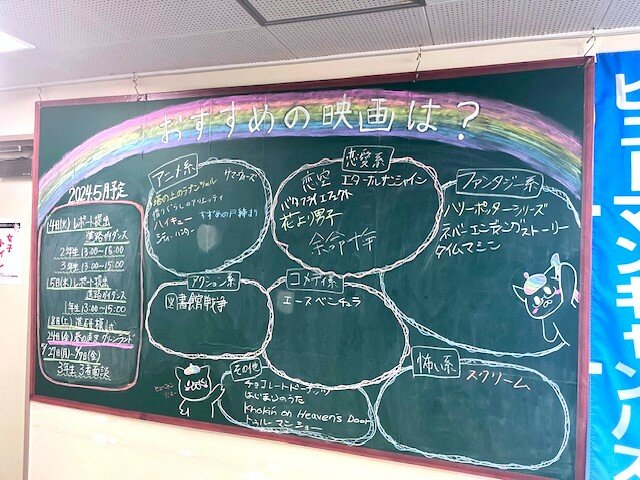 おすすめの映画は?
2024.5月予定
14日(火) レポート提出
進路ガイダンス
2年生 13:00〜15:00
3年生 13:00〜15:00
15日(水) レポート提出
進路ガイダンス
1年生 13:00〜15:00
18日(土)
24日(金) 春の遠足 グリーンランド
27日(月)〜
3年生 3者面談
アニメ系
サマーウォーズ
ハイキュー
すずめの戸締まり
シティーハンター
恋愛系
恋空 エターナルサンシャイン
バタフライエフェクト
花より男子
余命十年
ファンタジー系
ハリーポッターシリーズ
ネバーエンディングストーリー
タイムマシン
アクション系
図書館戦争
コメディ系
エースベンチュラ
その他
チョコレートドーナツ
はじまりのうた
Knokin on Heaven's Door
トゥルーマンショー
怖い系
スクリーム